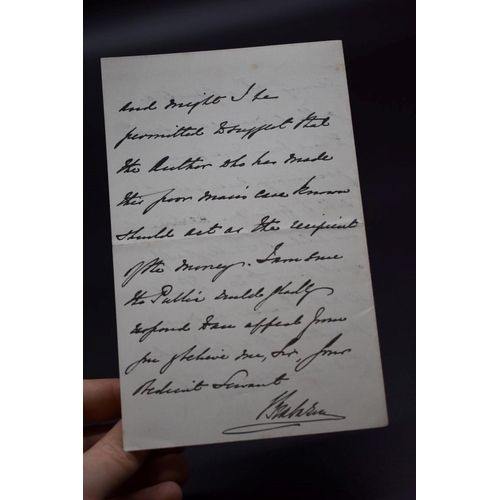 and might I be
permitted to suggest that
the Author who has made
this poor man's case known
should act as the recipient
of the money. I am sure
the Public would gladly
respond to an appeal from
you & believe me, Sir, your
Obedient Servant